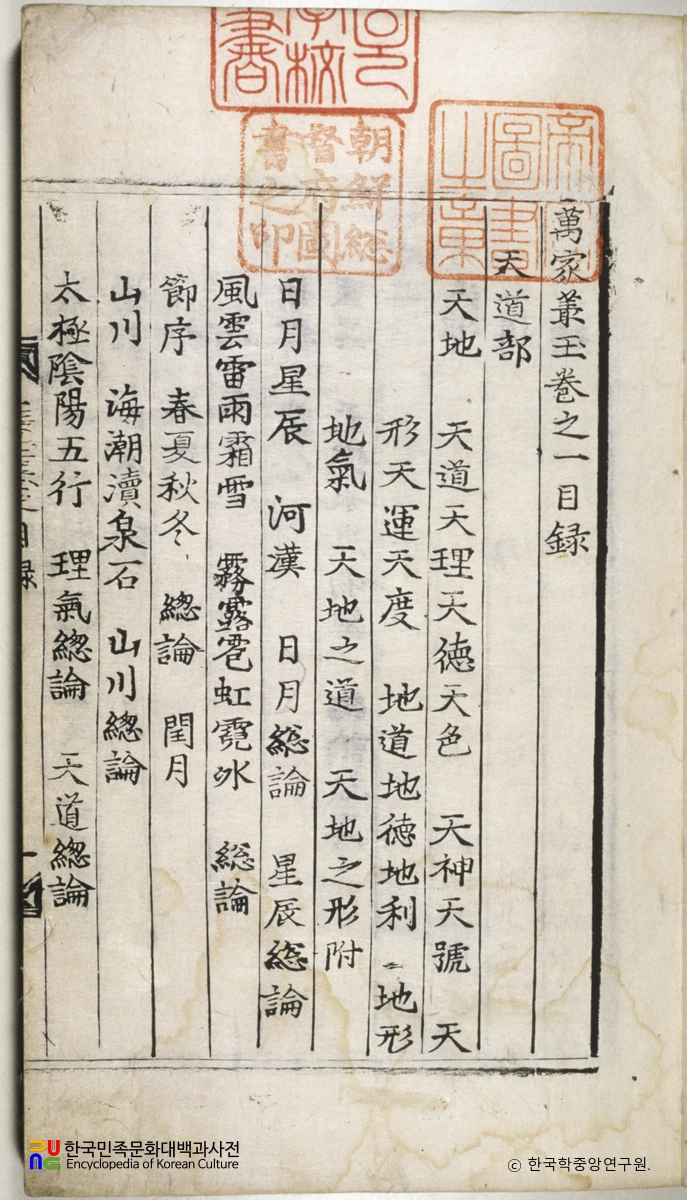 萬家叢玉卷之一目録
天道部
天地 天道天理天德天色 天神天號 天
形天運天度 地道地德地利 地形
地氣 天地之道 天地之形附
日月星辰 河漢 日月総論 星辰総論
風雲雷雨霜雪 霧露雹虹霓氷 総論
節序 春夏秋冬 總論 閏月
山川 海潮瀆泉石 山川總論
太極陰陽五行 理氣總論 天道總論
朝鮮総
督府圖
書之印
帝室
圖書
之章
한국민족문화대백과사전
Encyclopedia of Korean Culture
© 한국학중앙연구원.